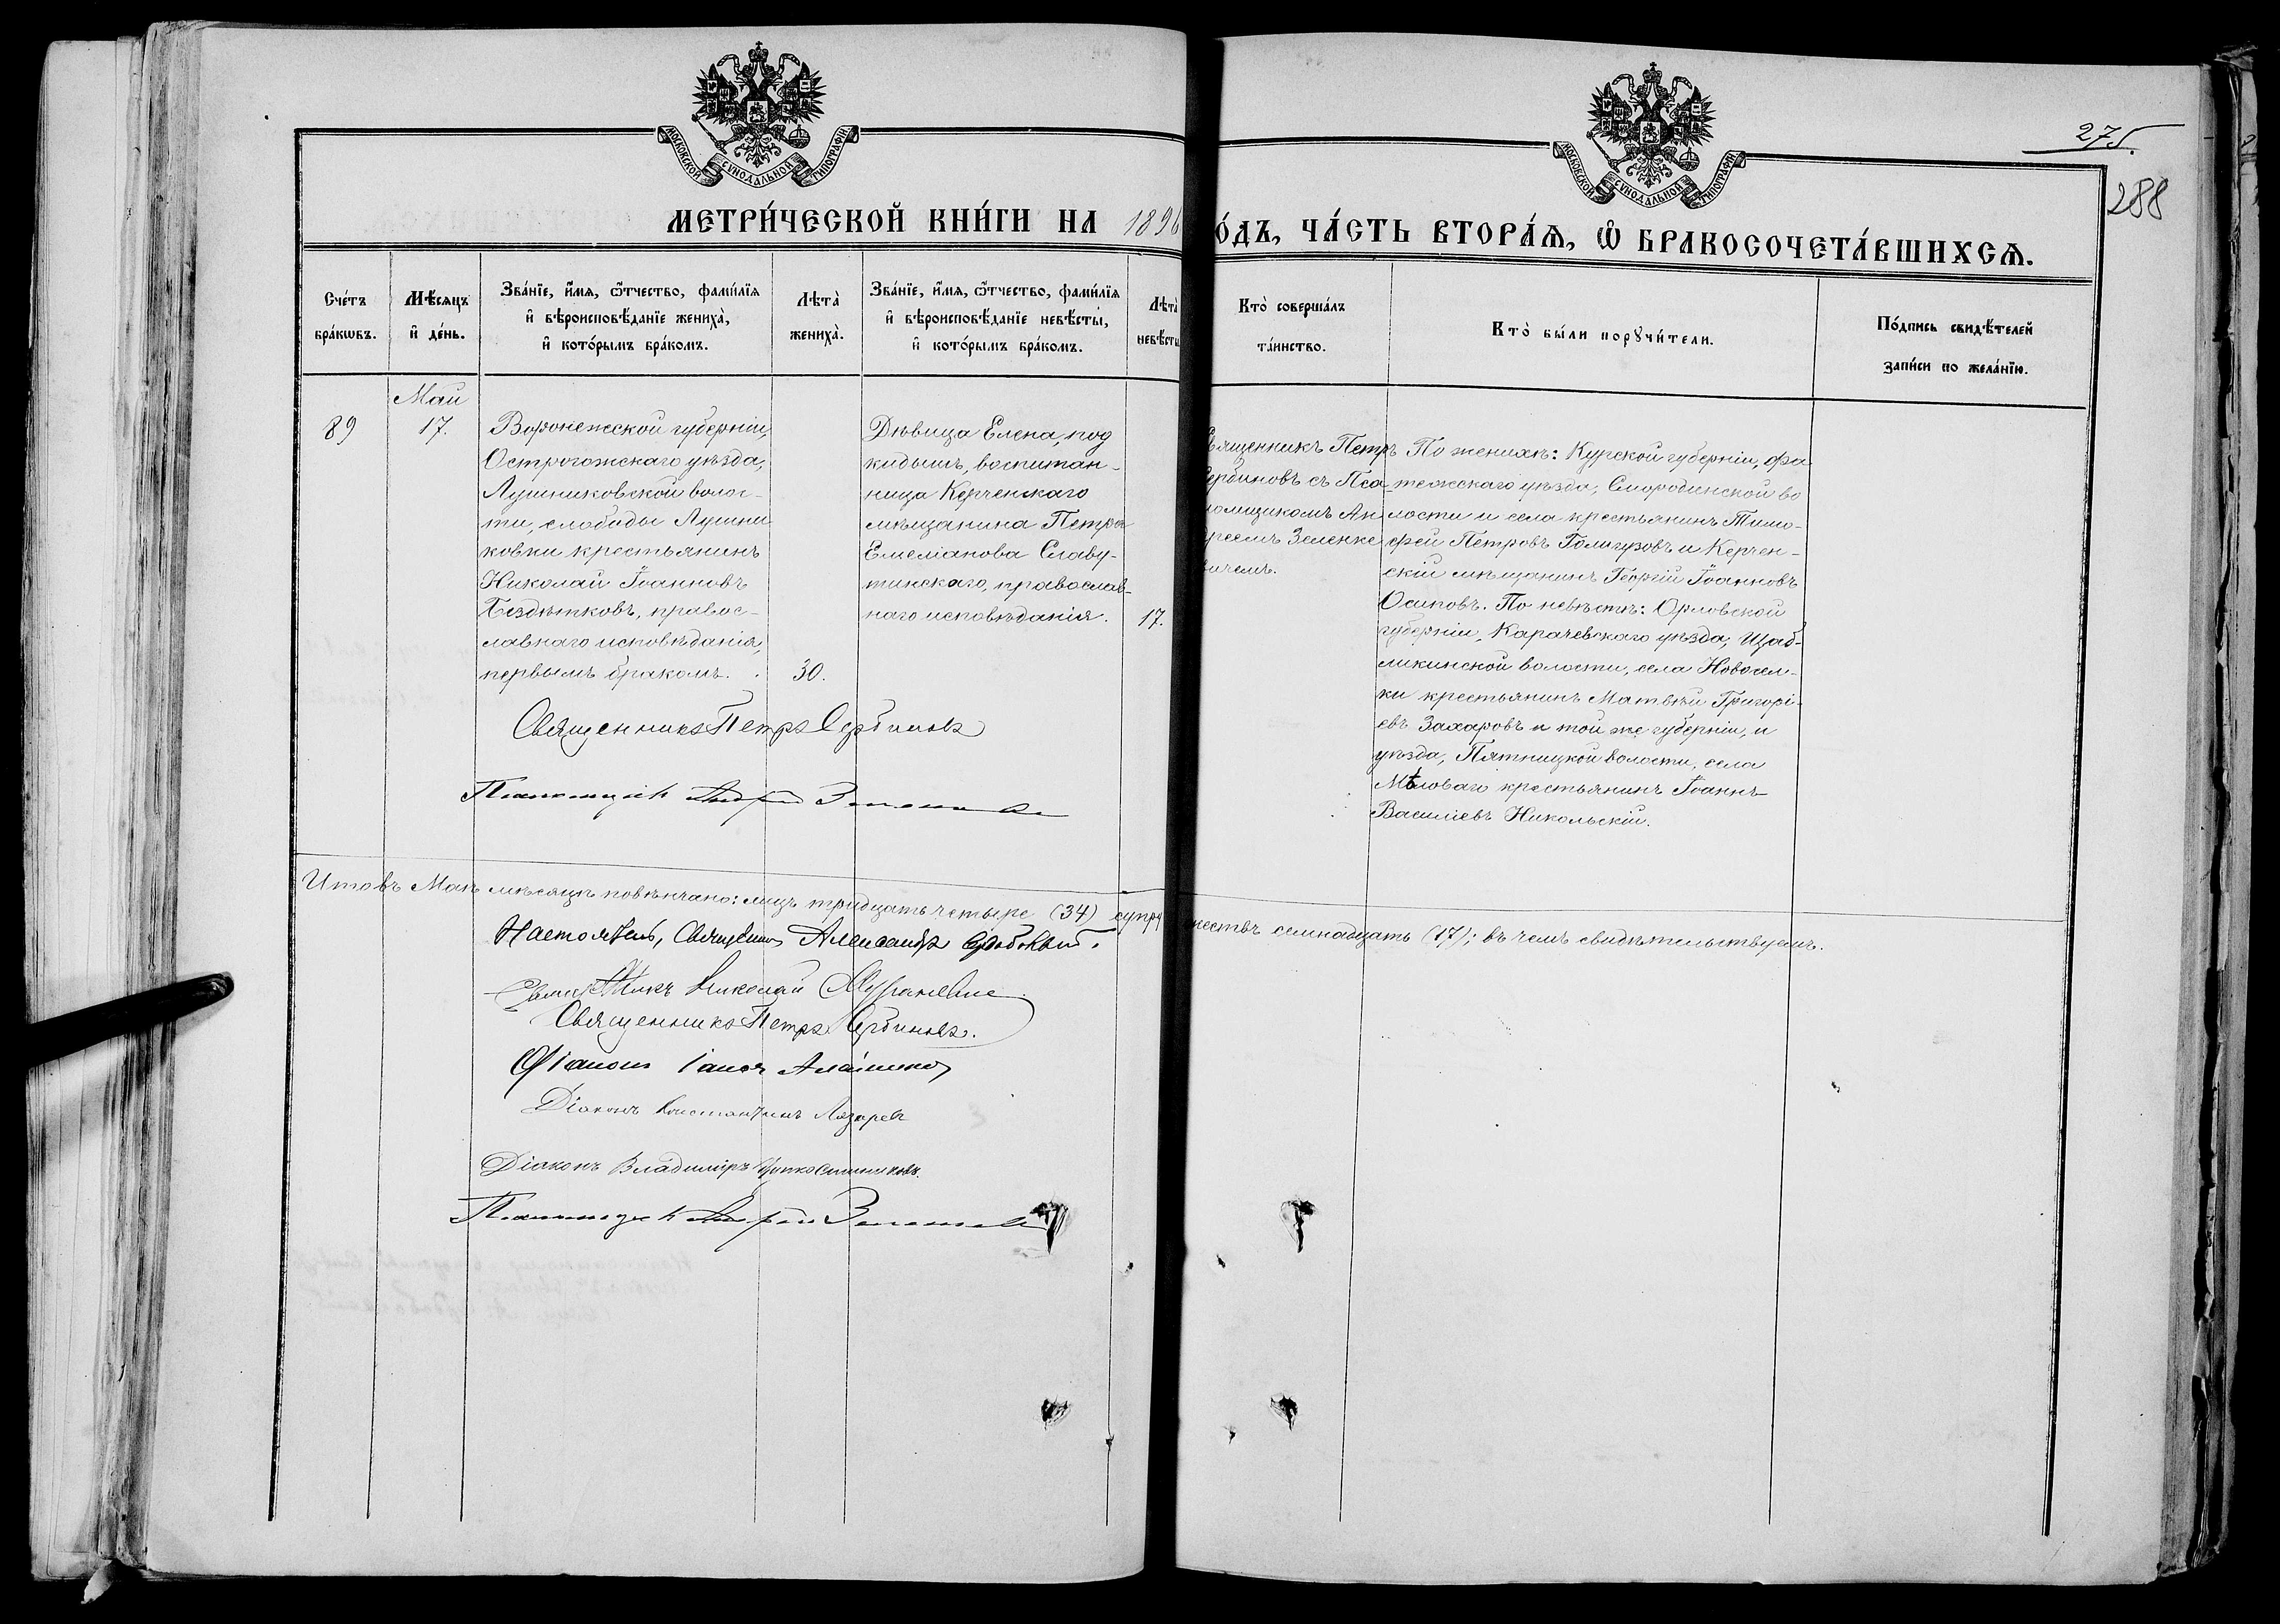 МОСКОВСКОЙ СѴНОДАЛЬНОЙ ТИПОГРАФІИ
МОСКОВСКОЙ СѴНОДАЛЬНОЙ ТИПОГРАФІИ
275.
288
МЕТРИ́ЧЕСКОЙ КНИ́ГИ НА 1896
О́ДЪ, ЧА́СТЬ ВТОРА́Ѧ, Ѡ БРАКОСОЧЕТА́ВШИХСѦ.
Сче́тъ
бра́кѡвъ.
Мѣ́сяцъ
и҆ де́нь.
Зва́нїе, и҆́мя, ѻ҆́тчество, фами́лїя
и҆ вѣроисповѣ́данїе жениха̀,
и҆ кото́рымъ бра́комъ.
Лѣта̀
жениха̀.
Зва́нїе, и҆́мя, ѻ҆́тчество, фами́лїя
и҆ вѣроисповѣ́данїе невѣ́сты,
и҆ кото́рымъ бра́комъ.
Лѣта̀
невѣ́сты
Кто̀ соверша́лъ
та́инство.
Кто̀ бы́ли порꙋчи́тели.
По́дпись свидѣ́телей
за́писи по жела́нїю.
Май
89
17.
Воронежской губерніи,
Острогожскаго уѣзда,
Лушниковской волос-
ти, слободы Лушни
ковки крестьянинъ
Николай Іоанновъ
Бездѣтковъ, правос-
лавнаго исповѣданія,
первымъ бракомъ.
30.
Дѣвица Елена, под
кидышъ, воспитан-
ница Керченскаго
мѣщанина Петра
Емеліанова Славу-
тинскаго, православ-
наго исповѣданія.
17.
Священникъ Петръ
Сербиновъ съ Пса-
ломщикомъ Ан
дреемъ Зеленке
вичемъ.
По женихѣ: Курской губерніи, Фа
тежскаго уѣзда, Смородинской во
лости и села крестьянинъ Тимо-
фей Петровъ Голигузовъ и Керчен-
скій мѣщанинъ Георгій Іоанновъ
Осиповъ. По невѣстѣ: Орловской
губерніи, Карачевскаго уѣзда, Шаб-
ликинской волости, села Новосел-
ки крестьянинъ Матвѣй Григорі-
евъ Захаровъ и той же губерніи, и
уѣзда, Пятницкой волости, села
Мѣловаго крестьянинъ Іоаннъ
Василіевъ Никольскій.
Священникъ Петръ Сербиновъ
Псаломщикъ Андрей
Итого въ Маѣ мѣсяцѣ повѣнчано: лицъ тридцать четыре (34) супру
жествъ семнадцать (17); въ чемъ свидѣтельствуемъ.
Настоятель, Священникъ Александръ
Священникъ Николай
Священникъ Петръ Сербиновъ.
Діаконъ
Діаконъ Константинъ Лазарев
Діаконъ Владимиръ
Псаломщикъ Андрей